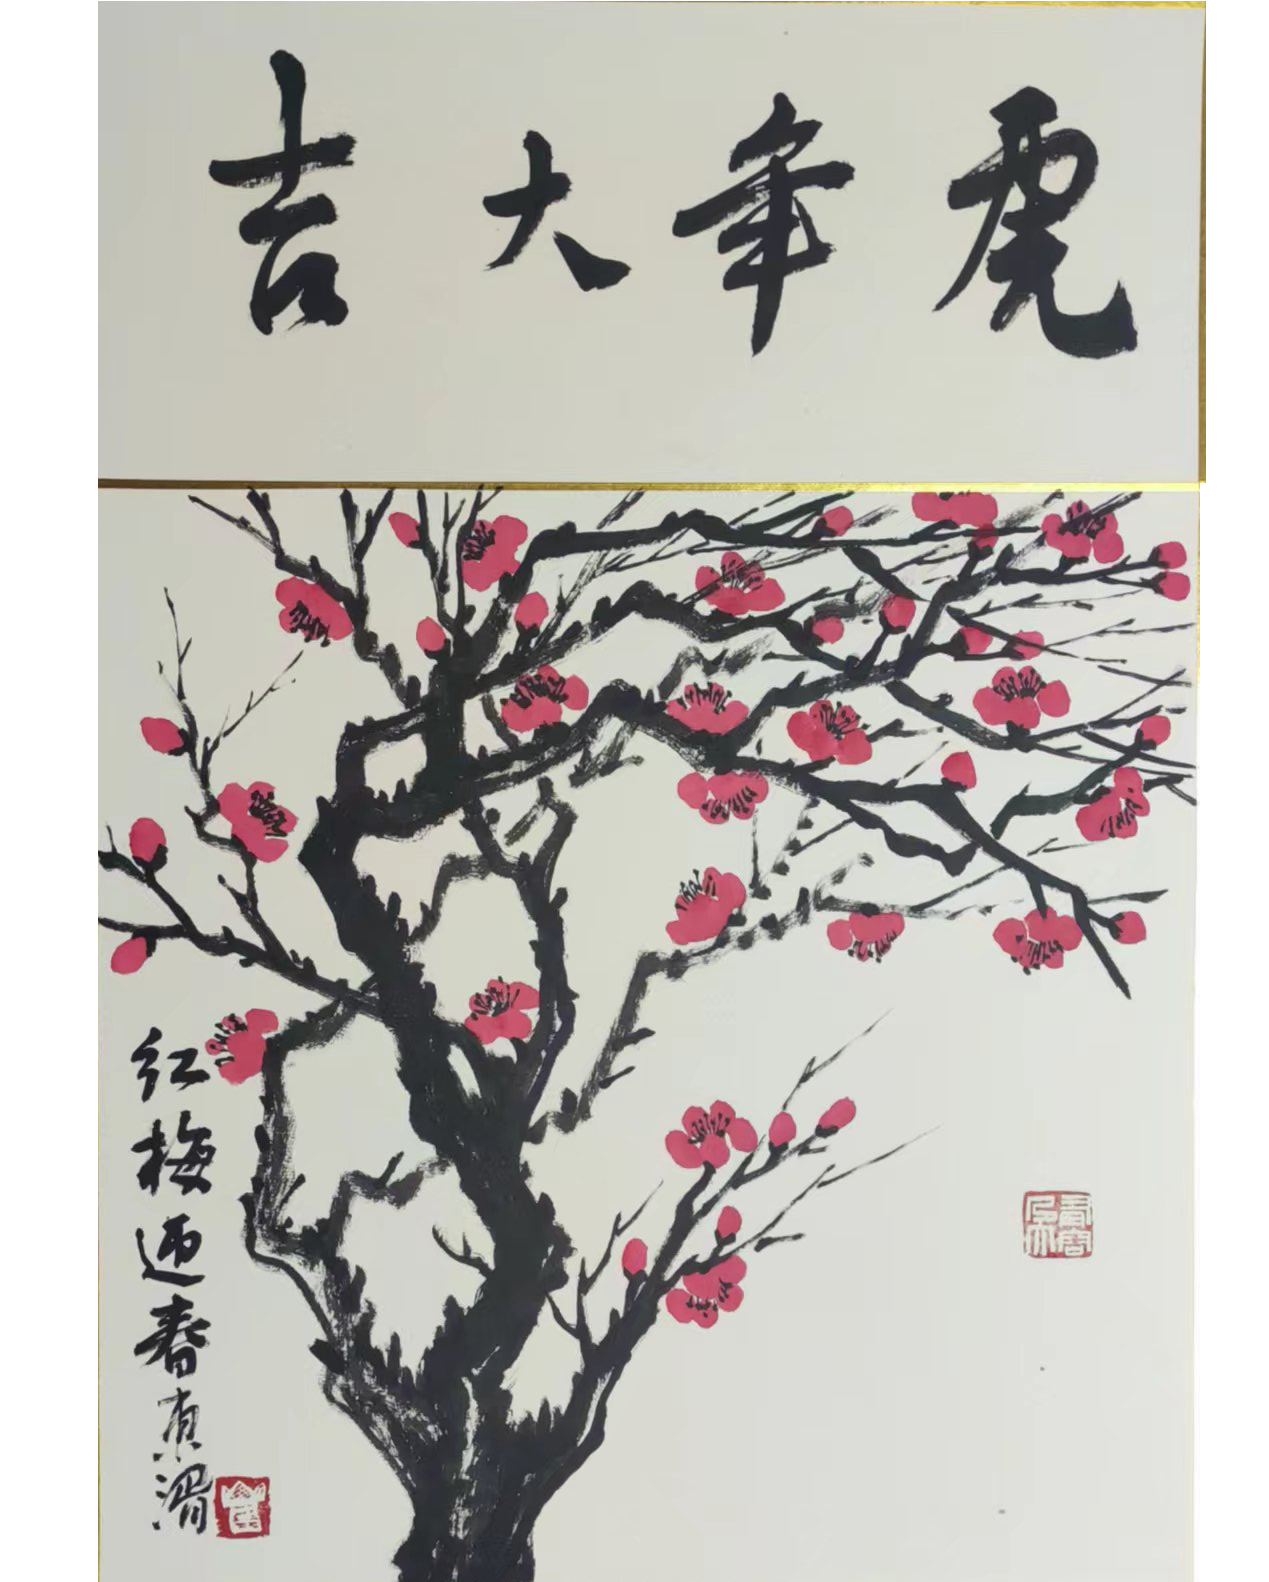 虎年大吉
红梅迎春